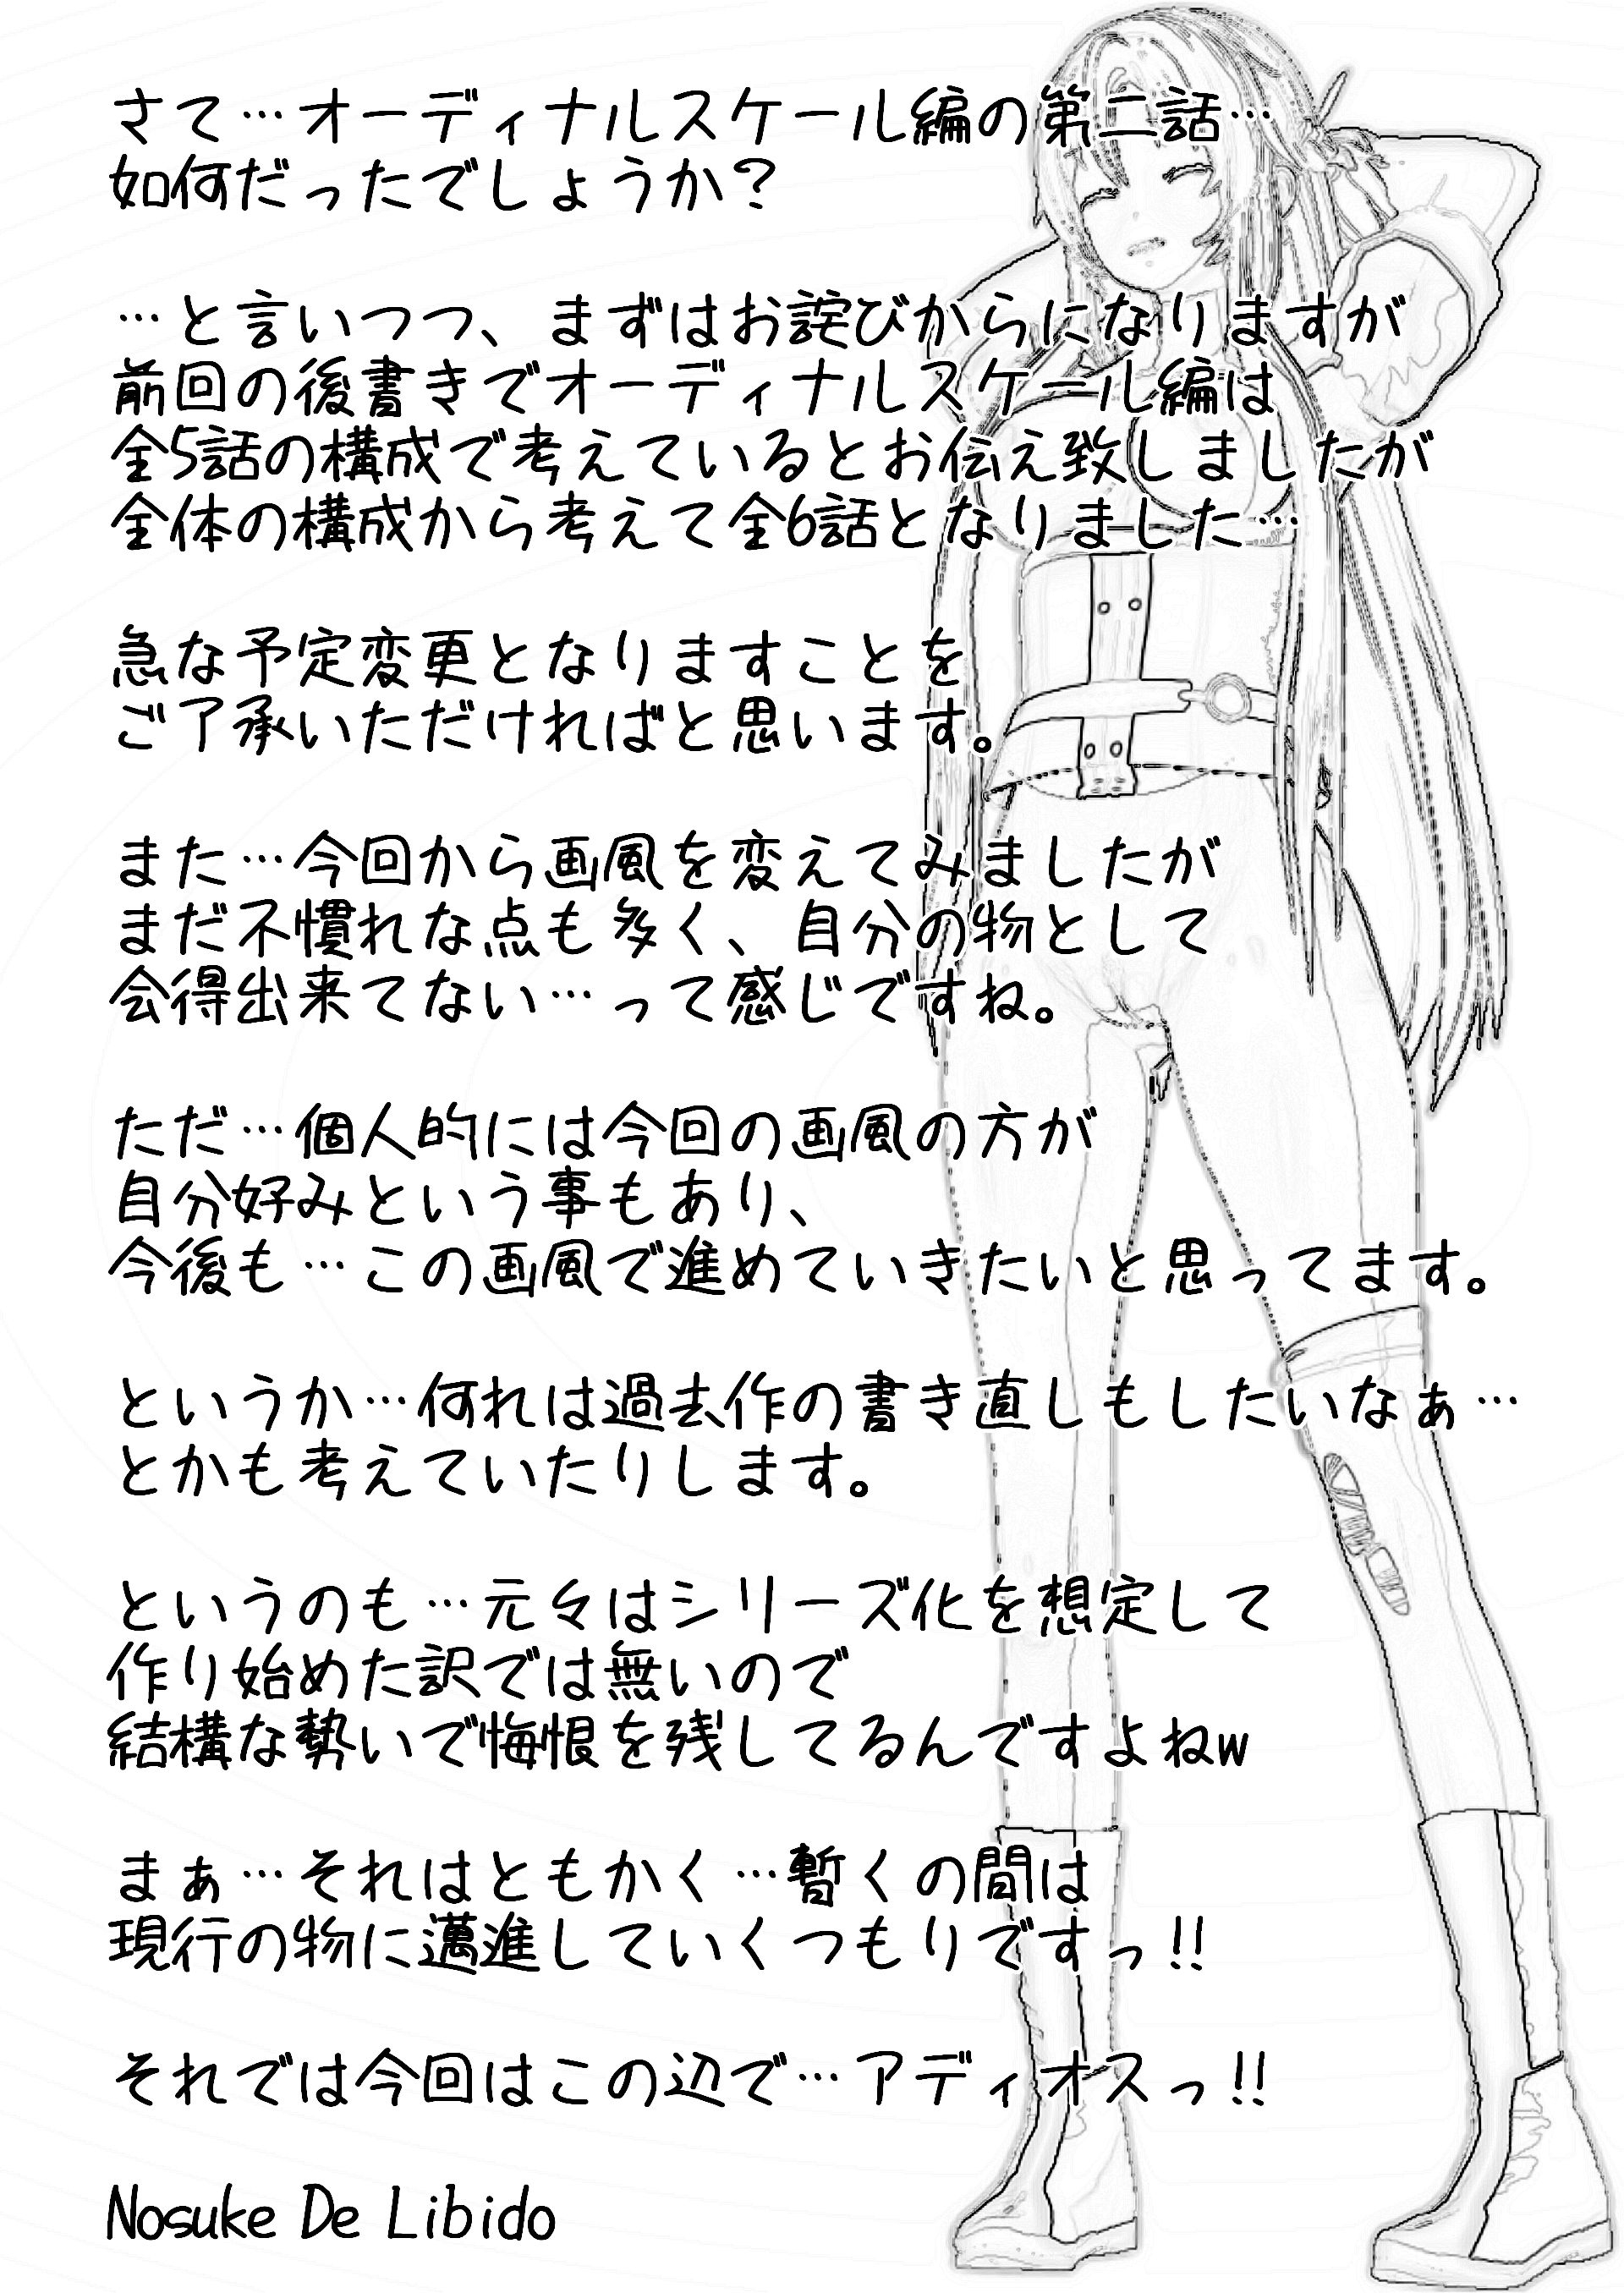 さて…オーディナルスケール編の第二話…
如何だったでしょうか？
…と言いつつ、まずはお詫びからになりますが
前回の後書きでオーディナルスケール編は
全5話の構成で考えているとお伝え致しましたが
全体の構成から考えて全6話となりました…
急な予定変更となりますことを
ご了承いただければと思います。
また…今回から画風を変えてみましたが
まだ不慣れな点も多く、自分の物として
会得出来てない…って感じですね。
ただ…個人的には今回の画風の方が
自分好みという事もあり、
今後も…この画風で進めていきたいと思ってます。
というか…何れは過去作の書き直しもしたいなぁ…
とかも考えていたりします。
というのも…元々はシリーズ化を想定して
作り始めた訳では無いので
結構な勢いで悔恨を残してるんですよねw
まぁ…それはともかく…暫くの間は
現行の物に邁進していくつもりですっ!!
それでは今回はこの辺で…アディオスっ!!
Nosuke De Libido